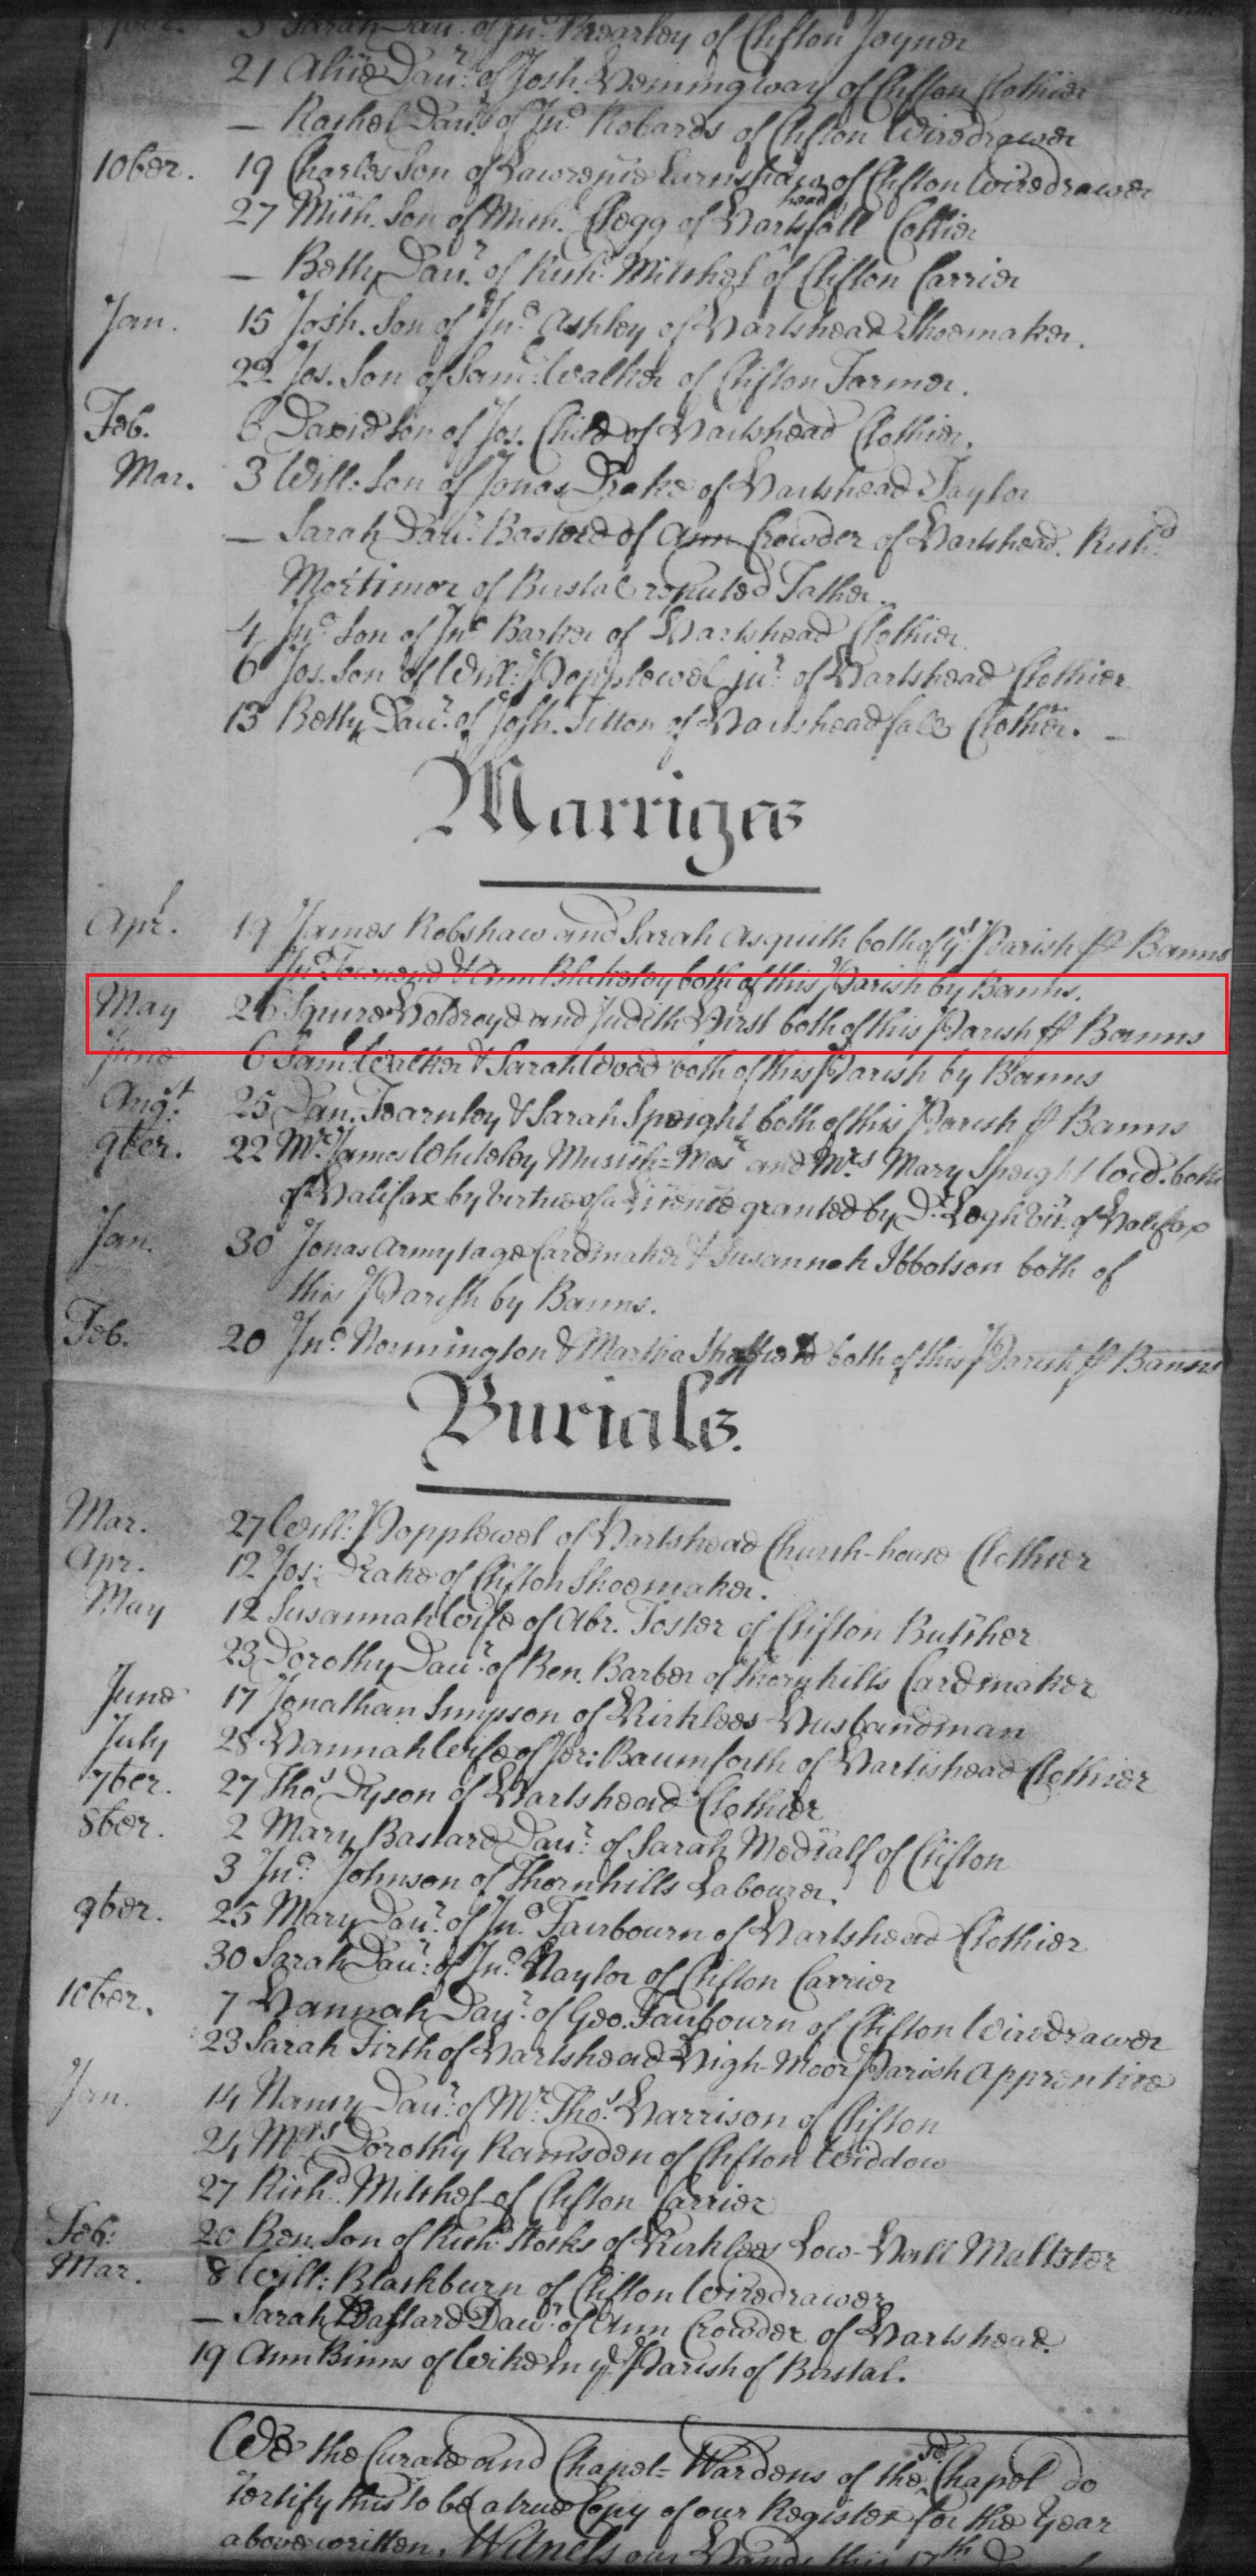 3 Sarah Daur. of Jno. Brearley of Clifton Joyner
21 Alice Daur. of Josh. Hemingway of Clifton Clothier
— Rachel Daur. of Jno. Robards of Clifton Wiredrawer
10ber. 19 Charles Son of Lawrence Earnshaw of Clifton Wiredrawer
27 Mich. Son of Mich. Clegg of Hartsheadfall Collier
— Betty Daur. of Richd. Mitchel of Clifton Carrier
Jan. 15 Josh. Son of Jno. Ashley of Hartshead Shoemaker.
22 Jos. Son of Saml. Walker of Clifton Farmer.
Feb. 6 David Son of Jos. Child of Hartshead Clothier.
Mar. 3 Will: Son of Jonas Drake of Hartshead Taylor
— Sarah Daur. Bastard of Ann Crowder of Hartshead. Richd.
Mortimer of Birstal reputed Father.
4 Jno. Son of Jno. Barker of Hartshead Clothier
6 Jos. Son of Will: Popplewel junr. of Hartshead Clothier
13 Betty Daur. of Josh. Sitton of Hartshead fall Clothier. —
Marriges
Aprl. 19 James Robshaw and Sarah Asquith both of ys. Parish p Banns
Jno. Townend & Ann Blakeley both of this Parish by Banns.
May 26 Squire Holdroyd and Judith Hirst both of this Parish p Banns
June 6 Saml. Walker & Sarah Wood both of this Parish by Banns
Augst. 25 Dan. Fearnley & Sarah Speight both of this Parish p Banns
9ber. 22 Mr. James Whiteley Musick-Masr. and Mrs. Mary Speight Wid. both
of Halifax by Virtue of a Licence granted by Dr. Legh Vicr. of Halifax
Jan. 30 Jonas Armytage Cardmaker & Susannah Ibbotson both of
this Parish by Banns.
Feb. 20 Jno. Normington & Martha Sheffield both of this Parish p Banns
Burials.
Mar. 27 Will: Popplewel of Hartshead Church-house Clothier
Apr. 12 Jos: Drake of Clifton Shoemaker.
May 12 Susannah Wife of Abr. Foster of Clifton Butcher
23 Dorothy Daur. of Ben. Barber of Thornhills Cardmaker
June 17 Jonathan Simpson of Kirklees Husbandman
July 28 Hannah Wife of Jer: Baumforth of Hartishead Clothier
7ber. 27 Thos. Dyson of Hartshead Clothier
8ber. 2 Mary Bastard Daur. of Sarah Medcalf of Clifton
3 Jno. Johnson of Thornhills Labourer.
9ber. 25 Mary Daur. of Jno. Fairbourn of Hartshead Clothier
30 Sarah Daur: of Jno. Naylor of Clifton Carrier
10ber. 7 Hannah Daur. of Geo. Fairbourn of Clifton Wiredrawer
23 Sarah Firth of Hartshead High-Moor Parish Apprentice
Jan. 14 Nancy Daur. of Mr. Thos. Harrison of Clifton
24 Mrs. Dorothy Ramsden of Clifton Widdow
27 Richd. Mitchel of Clifton Carrier
Feb: 20 Ben. Son of Richd. Stocks of Kirklees Low-Hall Maltster
Mar. 8 Will: Blackburn of Clifton Wiredrawer
— Sarah Bastard Daur. of Ann Crowder of Hartshead.
19 Ann Binns of Wike in ye Parish of Birstal.
We the Curate and Chapel-Wardens of the sd. Chapel do
certify this to be a true Copy of our Register for the Year
above written. Witness our Hands this 17th